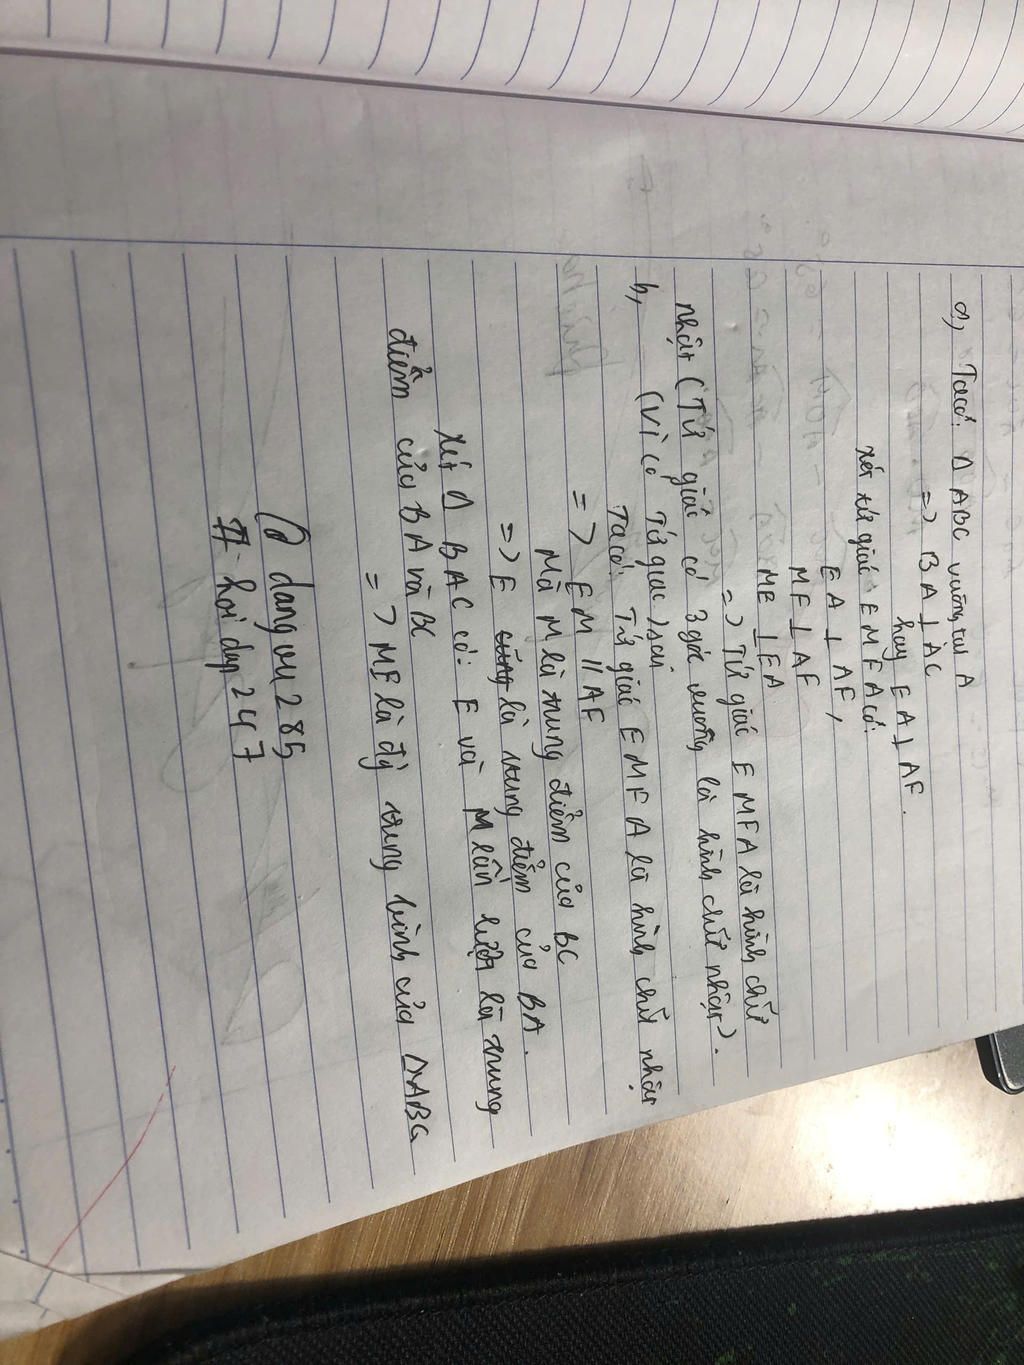 a, Ta có: Δ ABC vuông tại A
=> BA ⊥ AC
hay EA ⊥ AF.
xét tứ giác EMFA có:
EA ⊥ AF,
MF ⊥ AF
ME ⊥ EA
=> Tứ giác EMFA là hình chữ
nhật (Tứ giác có 3 góc vuông là hình chữ nhật).
b, (Vì có Tứ giác)
Ta có: Tứ giác EMFA là hình chữ nhật
=> EM // AF
Mà M là trung điểm của BC
=> E là trung điểm của BA.
Xét Δ BAC có: E và M lần lượt là trung
điểm của BA và BC
=> ME là đg trung bình của ΔABC
@ dangvu285
#hoidap247